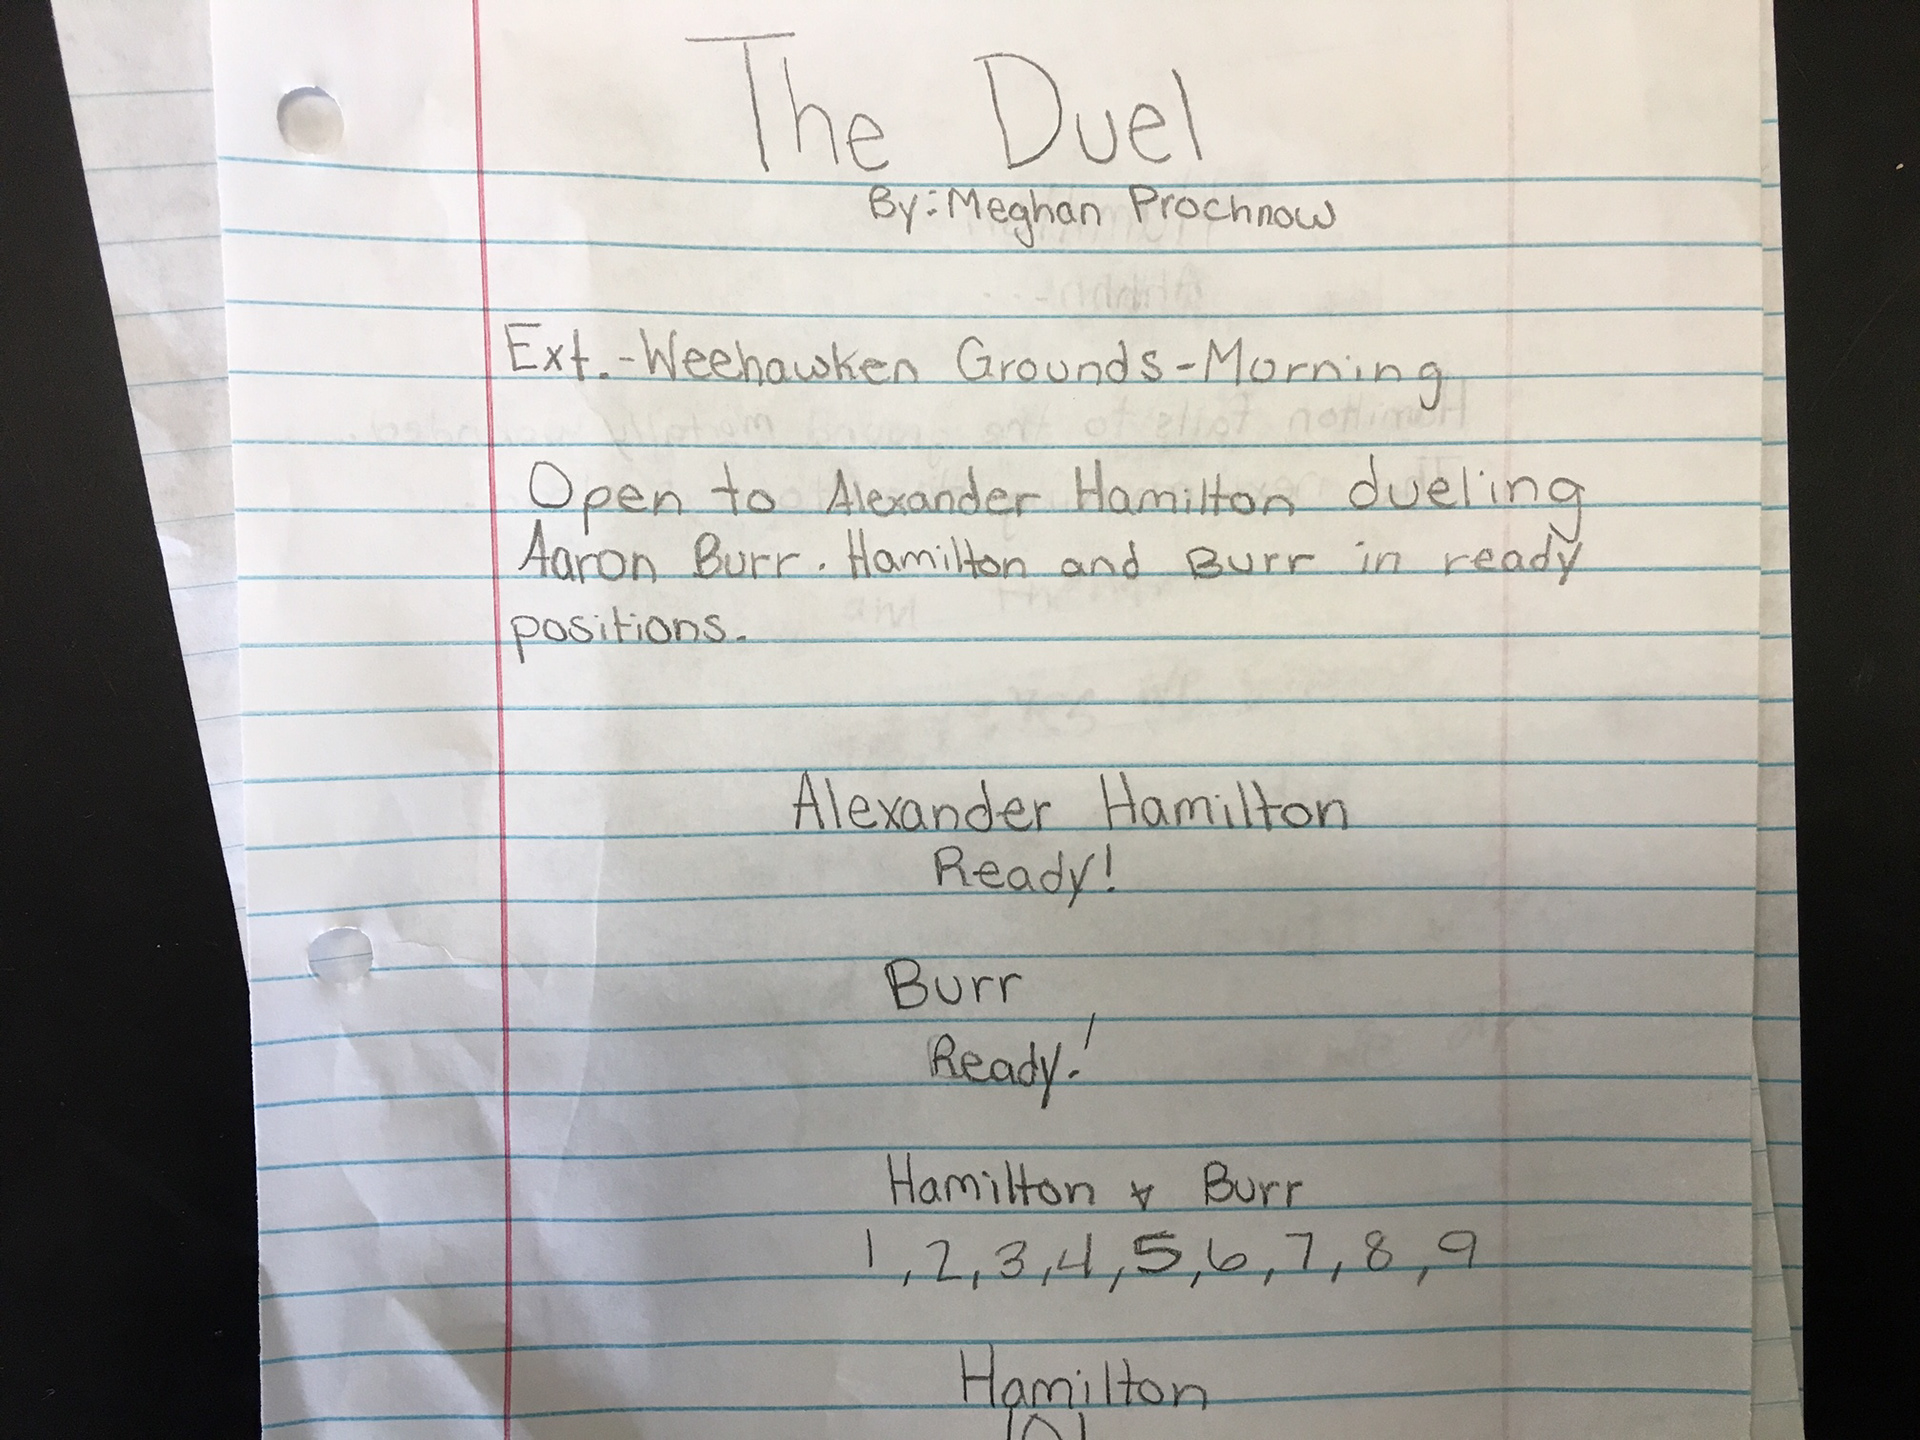 The Duel
By: Meghan Prochnow
Ext.-Weehawken Grounds-Morning
Open to Alexander Hamilton dueling
Aaron Burr. Hamilton and Burr in ready
positions.
Alexander Hamilton
Ready!
Burr
Ready!
Hamilton & Burr
1,2,3,4,5,6,7,8,9
Hamilton